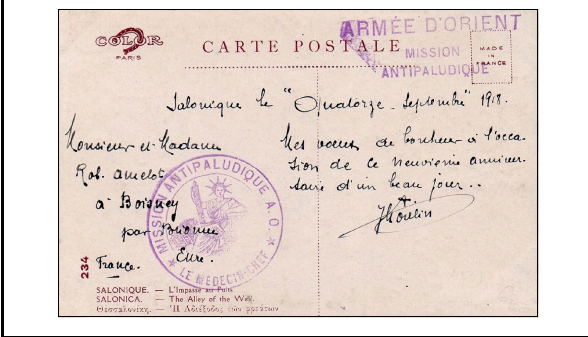 COLOR
PARIS
CARTE POSTALE
ARMÉE D'ORIENT
MISSION
ANTIPALUDIQUE
MADE
IN
FRANCE
Salonique le "Quatorze Septembre" 1918.
Monsieur et Madame
Rob. Amelot
à Boisney
par Brionne
Eure.
France.
Mes voeux de bonheur à l'occa
sion de ce neuvième anniver
saire d'un beau jour..
MISSION ANTIPALUDIQUE A.O.
LE MÉDECIN-CHEF
234
SALONIQUE. — L'Impasse au Puits
SALONICA. — The Alley of the Well.
Θεσσαλονίκη. — Ἡ Ἀδιέξοδος τῶν φρεάτων